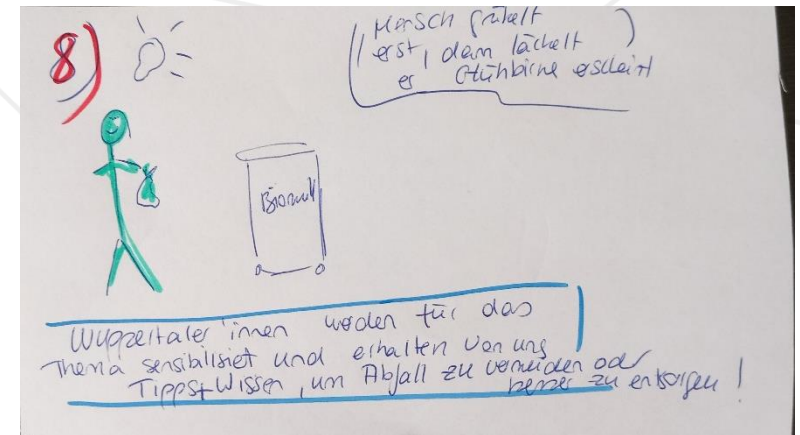 8)
Mensch grübelt
erst, dann lächelt
er Glühbirne erscheint
Biomüll
Wuppertaler*innen werden für das
Thema sensibilisiert und erhalten von uns
Tipps + Wissen, um Abfall zu vermeiden oder
besser zu entsorgen!